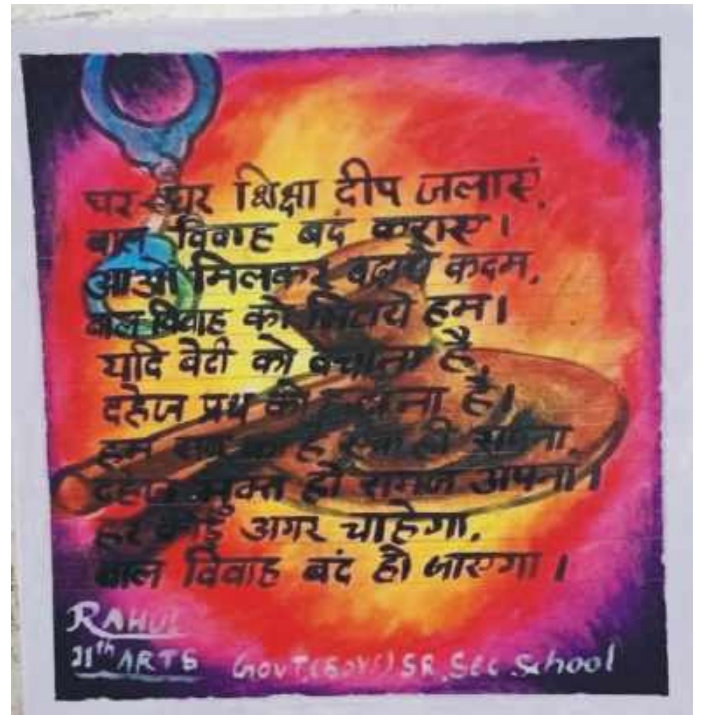 घर-घर शिक्षा दीप जलाएं,
बाल विवाह बदं कराए।
आओ मिलकर बढ़ाये कदम,
बाल विवाह को मिटाये हम।
यदि बेटी को बचाना है,
दहेज प्रथ को हटाना है।
हम सब का है एक ही सपना,
दहेज मुक्त हो समाज अपना।
हर कोई अगर चाहेगा,
बाल विवाह बंद हो जाएगा।
RAHUL
11th ARTS GOVT (BOYS) SR. Sec. School